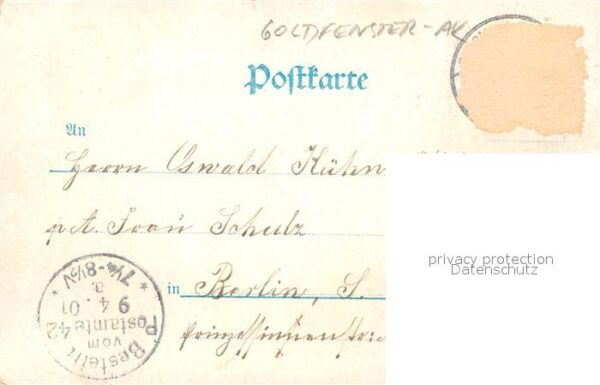 GOLDFENSTER-AK
Postkarte
An
Herrn Oswald Kühn
p.A. Frau Schulz
in Berlin, S.
Prinzessinnenstr:
Bestellt
vom
Postamte 42
9 4. 01
7¼-8½V
privacy protection
Datenschutz